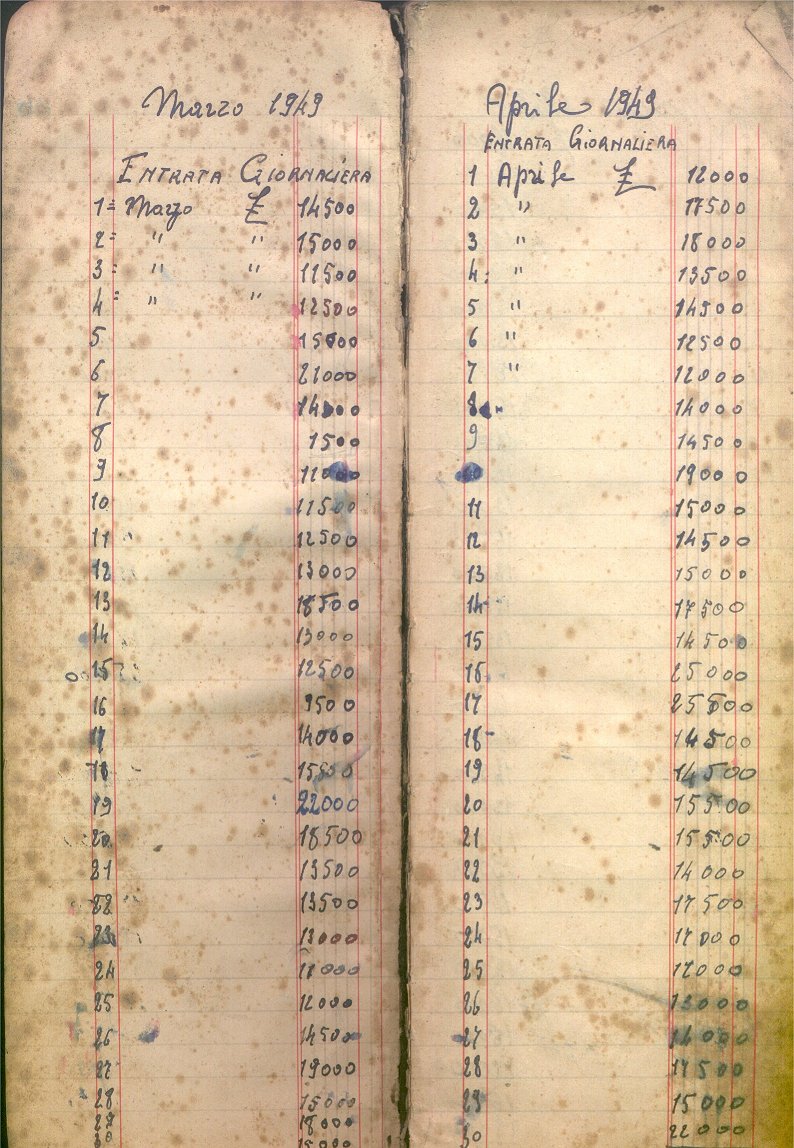 Marzo 1949
ENTRATA GIORNALIERA
1= Marzo £ 14500
2= " " 15000
3= " " 11500
4= " " 12500
5 15000
6 21000
7
8 1500
9
10 11500
11 12500
12 13000
13 18500
14 13000
15 12500
16 9500
17 14000
18 15500
19 22000
20 18500
21 13500
22 13500
23 13000
24
25 12000
26 14500
27 19000
28 15000
29 18000
30 15000
Aprile 1949
ENTRATA GIORNALIERA
1 Aprile £ 12000
2 " 17500
3 " 18000
4: " 13500
5 " 14500
6 " 12500
7 " 12000
8 14000
9 14500
19000
11 15000
12 14500
13 15000
14 17500
15 14500
16 25000
17 25500
18 14500
19 14500
20 15500
21 15500
22 14000
23 17500
24
25 12000
26 13000
27
28
29 15000
30 22000